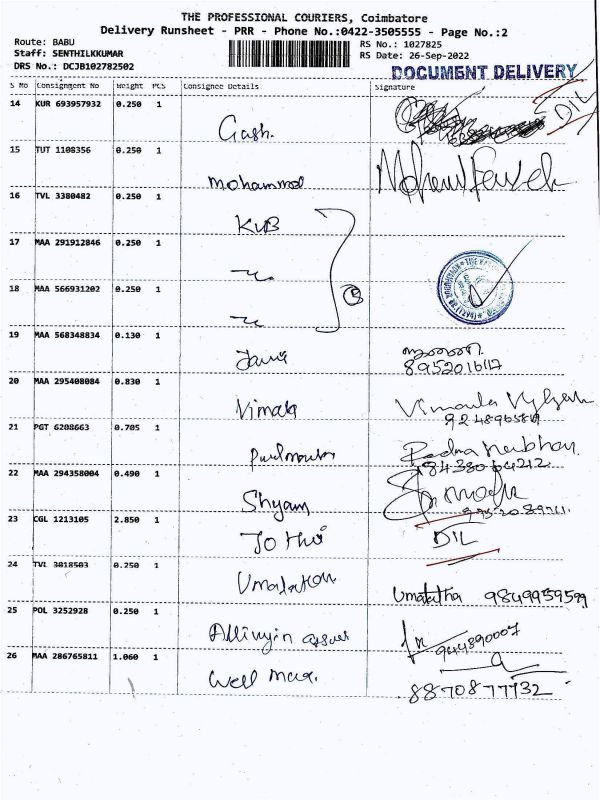 THE PROFESSIONAL COURIERS, Coimbatore
Delivery Runsheet - PRR - Phone No.:0422-3505555 - Page No.:2
Route: BABU
Staff: SENTHILKKUMAR
DRS No.: DCJB102782502
RS No.: 1027825
RS Date: 26-Sep-2022
DOCUMENT DELIVERY
S No Consignment No Weight PCS Consignee Details Signature
14 KUR 693957932 0.250 1 Gash. DIL
15 TUT 1108356 0.250 1 mohammed
16 TVL 3380482 0.250 1 KUB
17 MAA 291912846 0.250 1
18 MAA 566931202 0.250 1
19 MAA 568348834 0.130 1
8952016117
20 MAA 295408084 0.830 1 Vimala Vimala
21 PGT 6208663 0.705 1 Padma
22 MAA 294358004 0.490 1 Shyam
23 CGL 1213105 2.850 1 Jothi DIL
24 TVL 3018503 0.250 1 Umalatha 9849959599
25 POL 3252928 0.250 1
944890007
26 MAA 286765811 1.060 1 Well Max.
8870877732